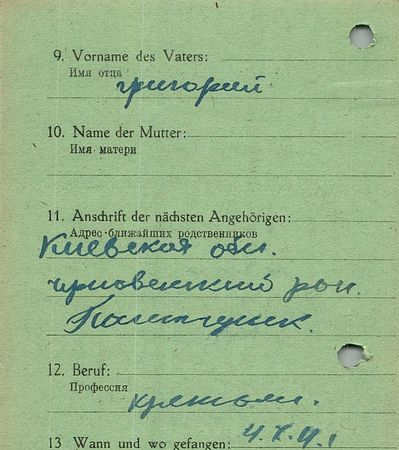 9. Vorname des Vaters:
Имя отца
григорий
10. Name der Mutter:
Имя матери
11. Anschrift der nächsten Angehörigen:
Адрес ближайших родственников
Киевская обл.
рон.
12. Beruf:
Профессия
13 Wann und wo gefangen: